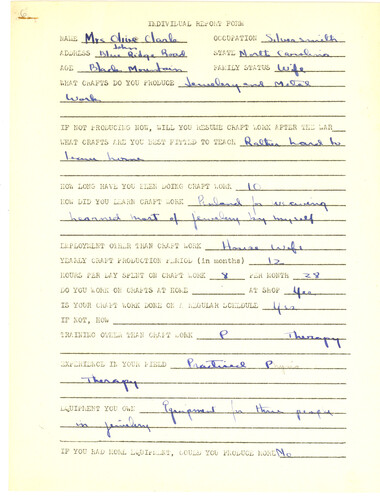 INDIVIDUAL REPORT FORM
NAME Mrs Olive Clark OCCUPATION Silversmith
John
ADDRESS Blue Ridge Road STATE North Carolina
AGE Black Mountain FAMILY STATUS Wife
WHAT CRAFTS DO YOU PRODUCE Jewelery and Metal
Work
IF NOT PRODUCING NOW, WILL YOU RESUME CRAFT WORK AFTER THE WAR
WHAT CRAFTS ARE YOU BEST FITTED TO TEACH hard to
leave home
HOW LONG HAVE YOU BEEN DOING CRAFT WORK 10
HOW DID YOU LEARN CRAFT WORK Penland for weaving
Learned most of jewelery by myself
EMPLOYMENT OTHER THAN CRAFT WORK House Wife
YEARLY CRAFT PRODUCTION PERIOD (in months) 12
HOURS PER DAY SPENT ON CRAFT WORK 8 PER MONTH 28
DO YOU WORK ON CRAFTS AT HOME AT SHOP Yes
IS YOUR CRAFT WORK DONE ON A REGULAR SCHEDULE Yes
IF NOT, HOW
TRAINING OTHER THAN CRAFT WORK P Therapy
EXPERIENCE IN YOUR FIELD Practiced
Therapy
EQUIPMENT YOU OWN Equipment for three people
in jewelery
IF YOU HAD MORE EQUIPMENT, COULD YOU PRODUCE MORE No